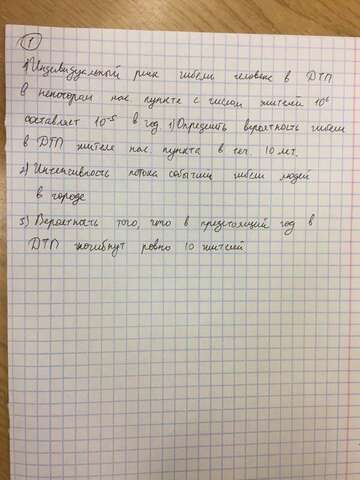 1
1) Индивидуальный риск гибели человека в ДТП
в некотором нас. пункте с числом жителей 10⁶
составляет 10⁻⁵ в год. 1) Определить вероятность гибели
в ДТП жителя нас. пункта в теч. 10 лет.
2) Интенсивность потока событий гибели людей
в городе
3) Вероятность того, что в предстоящий год в
ДТП погибнут ровно 10 жителей